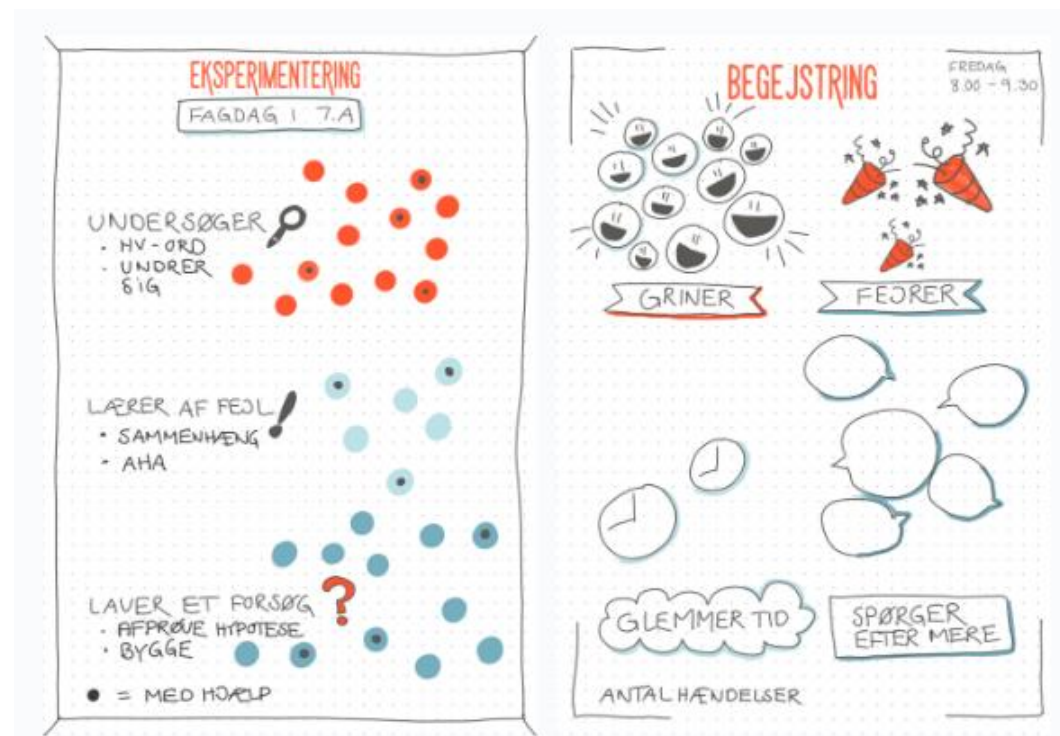 EKSPERIMENTERING
FAGDAG I 7.A
UNDERSØGER
• HV-ORD
• UNDRER
SIG
LÆRER AF FEJL
• SAMMENHÆNG
• AHA
LAVER ET FORSØG
• AFPRØVE HYPOTESE
• BYGGE
● = MED HJÆLP
BEGEJSTRING
FREDAG
8.00 - 9.30
GRINER
FEJRER
GLEMMER TID
SPØRGER
EFTER MERE
ANTAL HÆNDELSER